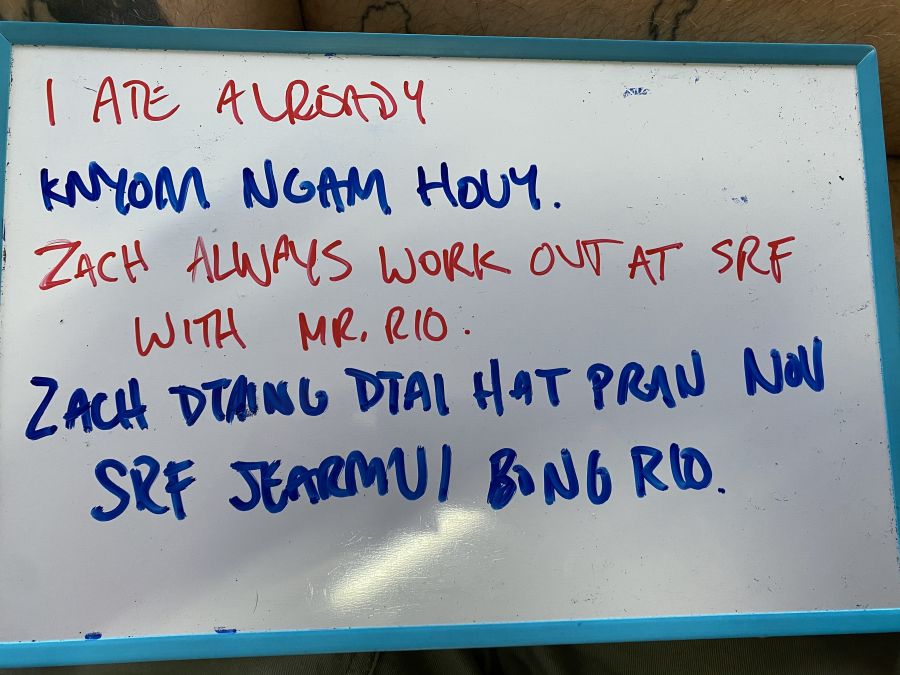 I ATE ALREADY
KNYOM NGAM HOUY.
ZACH ALWAYS WORK OUT AT SRF
WITH MR. RIO.
ZACH DTANG DTAI HAT PRAN NOV
SRF JEARMUI BONG RIO.